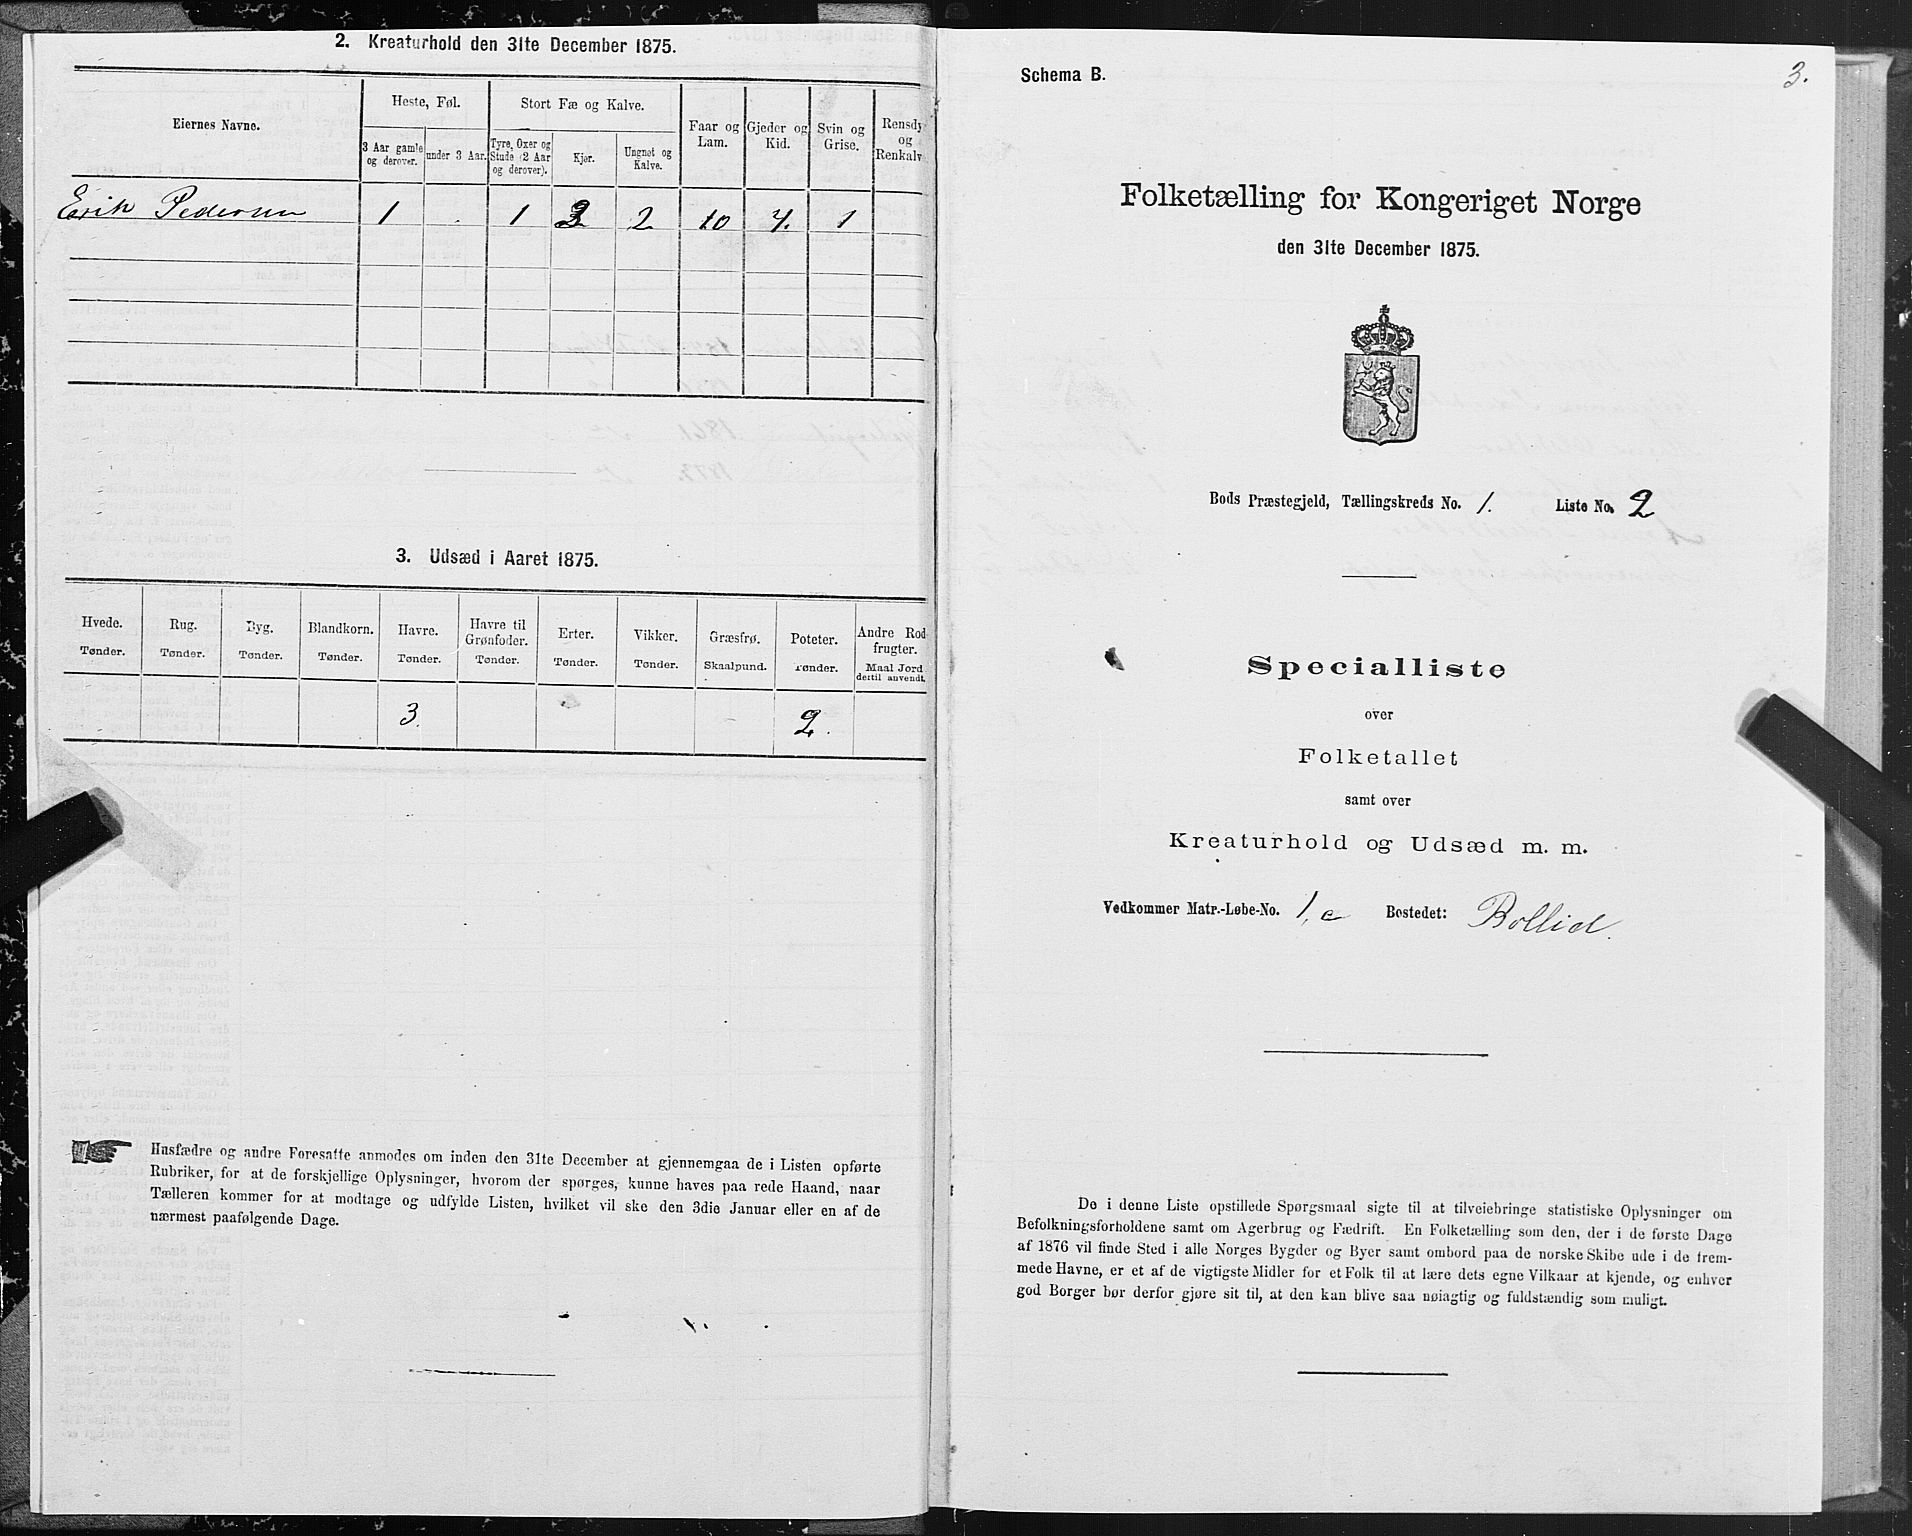 2. Kreaturhold den 31te December 1875.
Eiernes Navne.
Heste, Føl.
Stort Fæ og Kalve.
Faar og Lam.
Gjeder og Kid.
Svin og Grise.
Rensdy og Renkalv
3 Aar gamle og derover.
under 3 Aar.
Tyre, Oxer og Stude (2 Aar og derover).
Kjør.
Ungnøt og Kalve.
Erik Pedersen 1 . 1 3 2 10 4. 1
3. Udsæd i Aaret 1875.
Hvede. Rug. Byg. Blandkorn. Havre. Havre til Grønfoder. Erter. Vikker. Græsfrø. Poteter. Andre Rodfrugter.
Tønder. Tønder. Tønder. Tønder. Tønder. Tønder. Tønder. Tønder. Skaalpund. Tønder. Maal Jord dertil anvendt.
3. 2.
Husfædre og andre Foresatte anmodes om inden den 31te December at gjennemgaa de i Listen opførte
Rubriker, for at de forskjellige Oplysninger, hvorom der spørges, kunne haves paa rede Haand, naar
Tælleren kommer for at modtage og udfylde Listen, hvilket vil ske den 3die Januar eller en af de
nærmest paafølgende Dage.
Schema B.
3.
Folketælling for Kongeriget Norge
den 31te December 1875.
Bods Præstegjeld, Tællingskreds No. 1. Liste No. 2
Specialliste
over
Folketallet
samt over
Kreaturhold og Udsæd m. m.
Vedkommer Matr.-Løbe-No. 1,c Bostedet: Bollid.
De i denne Liste opstillede Spørgsmaal sigte til at tilveiebringe statistiske Oplysninger om
Befolkningsforholdene samt om Agerbrug og Fædrift. En Folketælling som den, der i de første Dage
af 1876 vil finde Sted i alle Norges Bygder og Byer samt ombord paa de norske Skibe ude i de frem-
mede Havne, er et af de vigtigste Midler for et Folk til at lære dets egne Vilkaar at kjende, og enhver
god Borger bør derfor gjøre sit til, at den kan blive saa nøiagtig og fuldstændig som muligt.